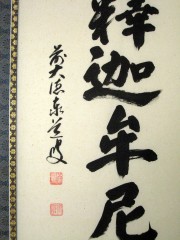 釋迦牟尼
前大德泰道叟